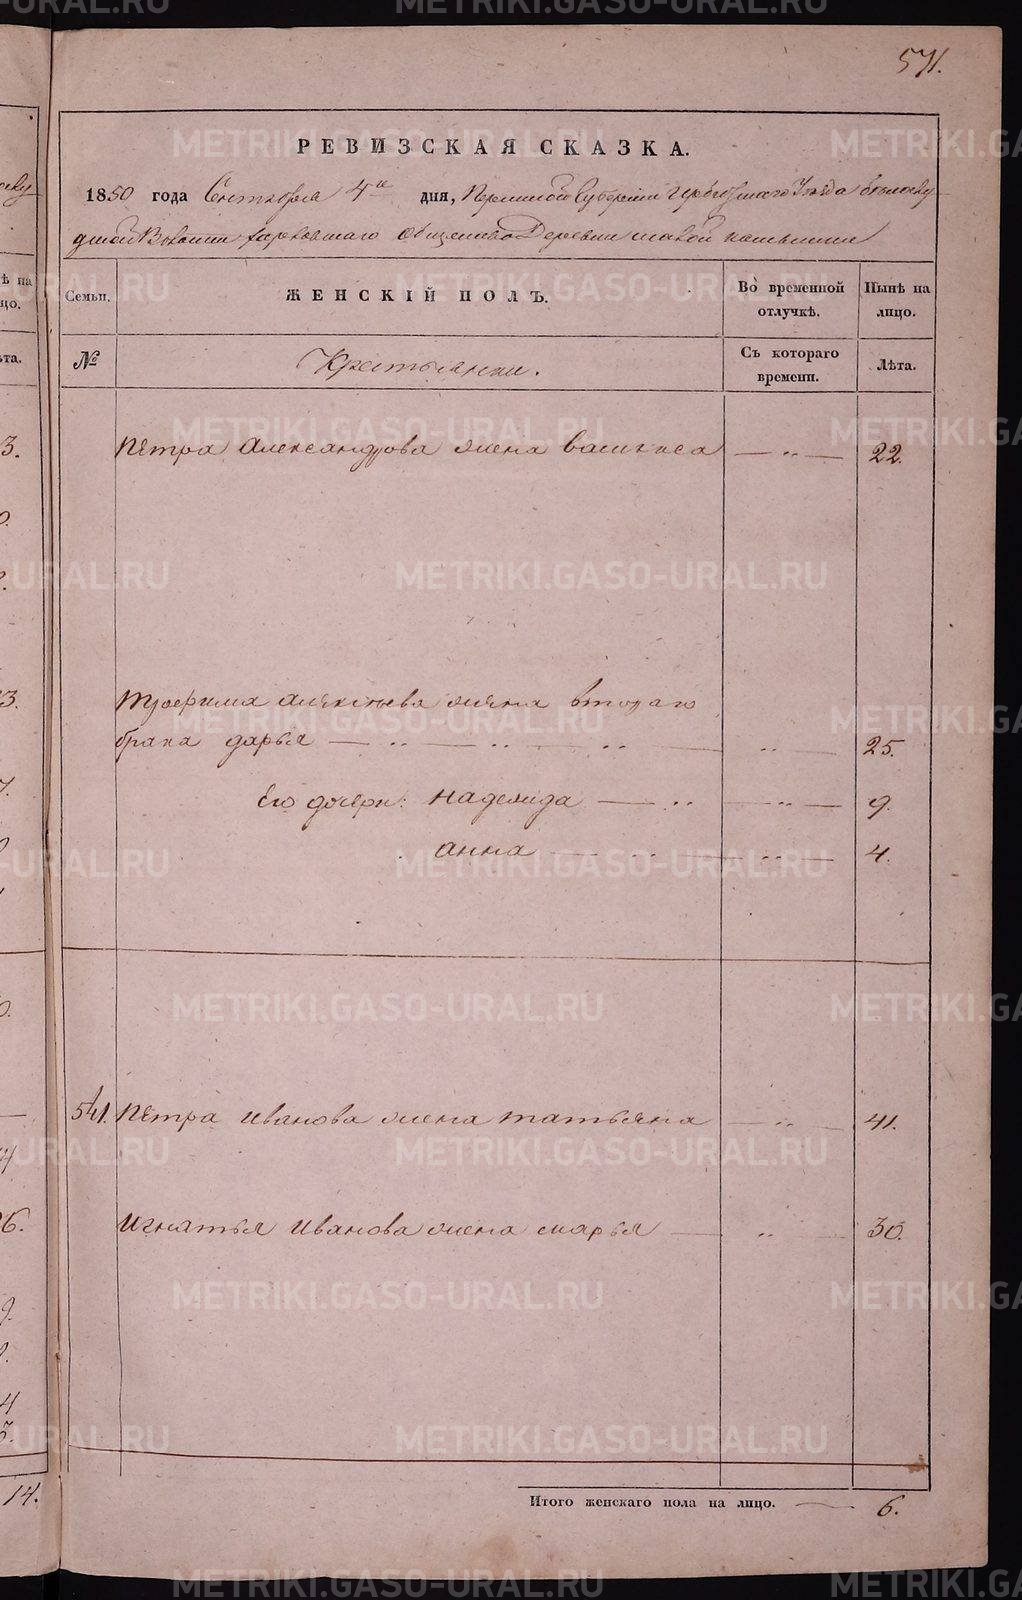 571.
РЕВИЗСКАЯ СКАЗКА.
1850 года Сентября 4го дня, Пермской Губернии Ирбитскаго Уезда Белослу
дской Волости Харловскаго Общества Деревни
Семьи. ЖЕНСКІЙ ПОЛЪ. Во временной отлучкѣ. Нынѣ на лицо.
№ Крестьянки. Съ котораго времени. Лѣта.
Петра Александрова жена Васи — " — 22.
Трофима Алексѣева жена втораго
брака Дарья — " — " — " — " — 25.
Его дочери: Надежда — " — " — 9.
Анна — " — " — 4.
541. Петра Иванова жена Татьяна — " — 41.
Игнатья Иванова жена Марья — " — 30.
Итого женскаго пола на лицо. — 6.
METRIKI.GASO-URAL.RU